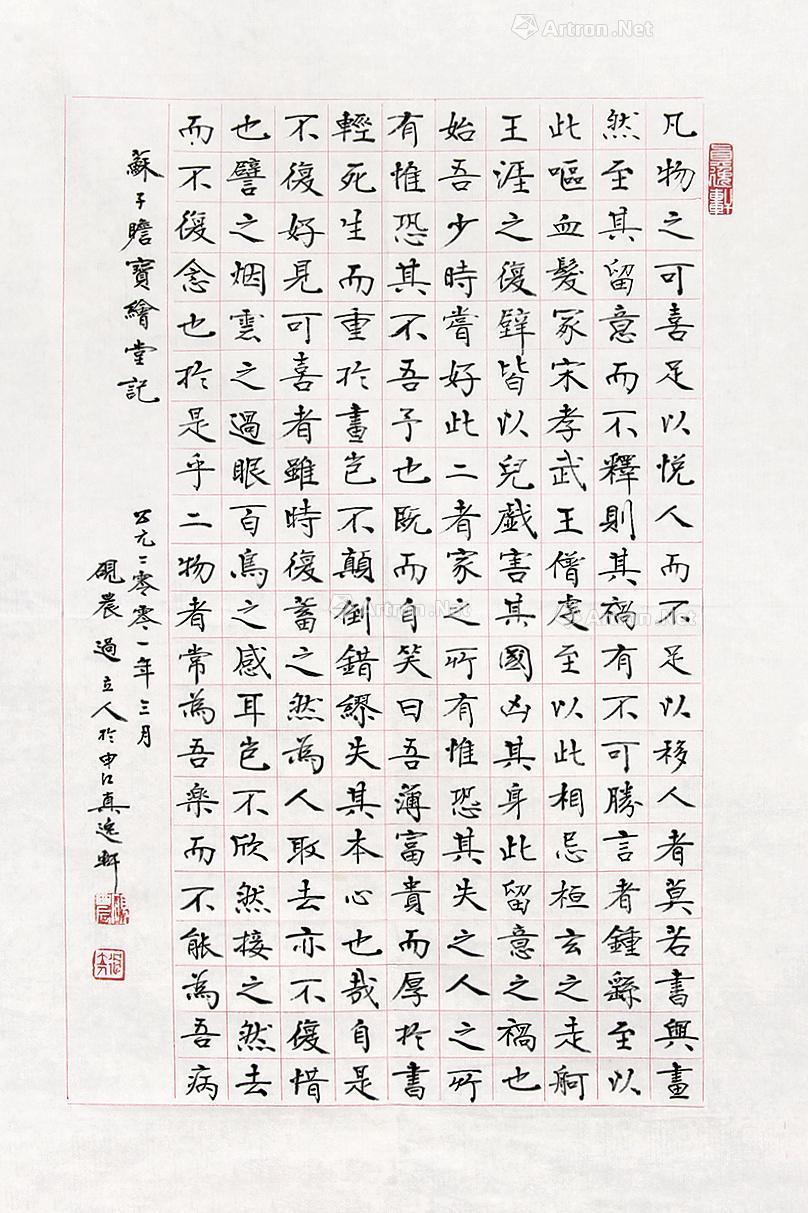 凡物之可喜足以悅人而不足以移人者莫若書與畫
然至其留意而不釋則其禍有不可勝言者鍾繇至以
此嘔血發冢宋孝武王僧虔至以此相忌桓玄之走舸
王涯之復壁皆以兒戲害其國凶其身此留意之禍也
始吾少時嘗好此二者家之所有惟恐其失之人之所
有惟恐其不吾予也既而自笑曰吾薄富貴而厚於書
輕死生而重於畫豈不顛倒錯繆失其本心也哉自是
不復好見可喜者雖時復蓄之然為人取去亦不復惜
也譬之烟雲之過眼百鳥之感耳豈不欣然接之然去
而不復念也於是乎二物者常為吾樂而不能為吾病
蘇子瞻寶繪堂記
公元二零零一年三月
硯農過立人於申江真逸軒
真逸軒
Artron.Net
Artron.Net
Artron.Net